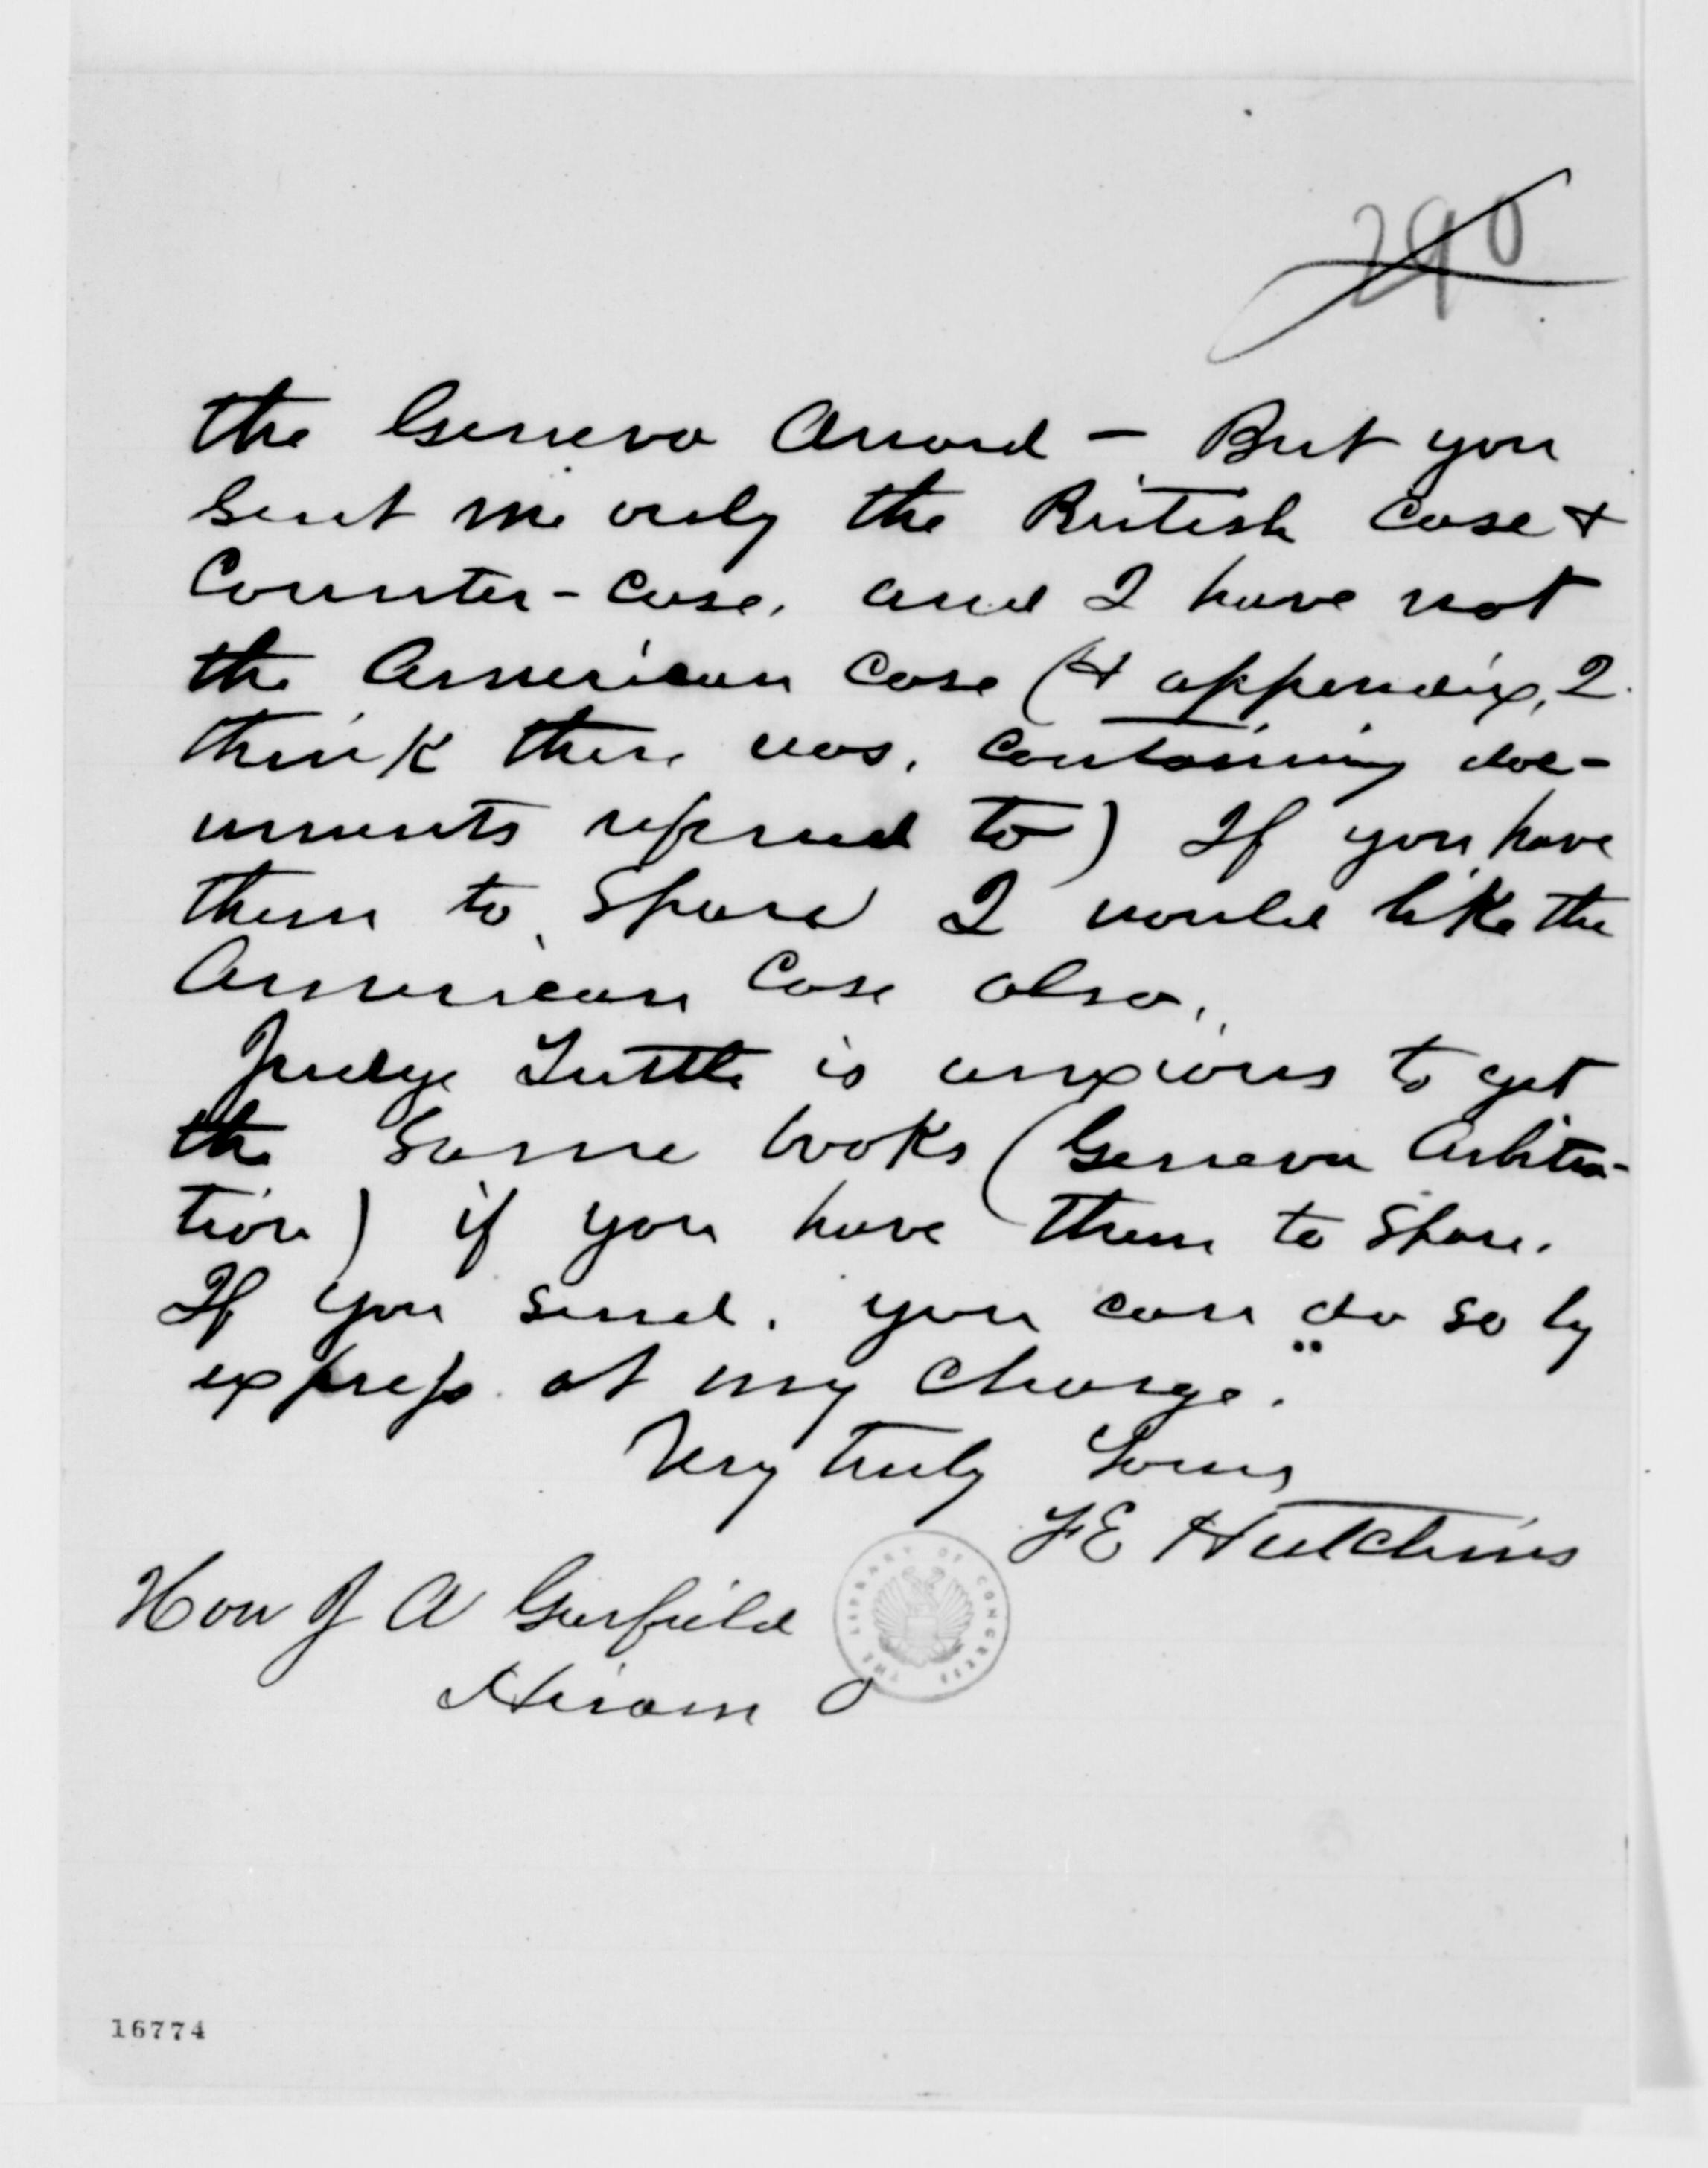 290
the Geneva Award – But you
sent me only the British case &
Counter-case. and I have not
the American case (& appendix, I
think there was, containing doc-
uments referred to) If you have
them to spare I would like the
American Case also.
Judge Tuttle is anxious to get
the same books (Geneva Arbitra-
tion) if you have them to spare.
If you send. you can do so by
express at my charge.
Very truly Yours
F E Hutchins
Hon J A Garfield
Hiram O
THE LIBRARY OF CONGRESS
16774